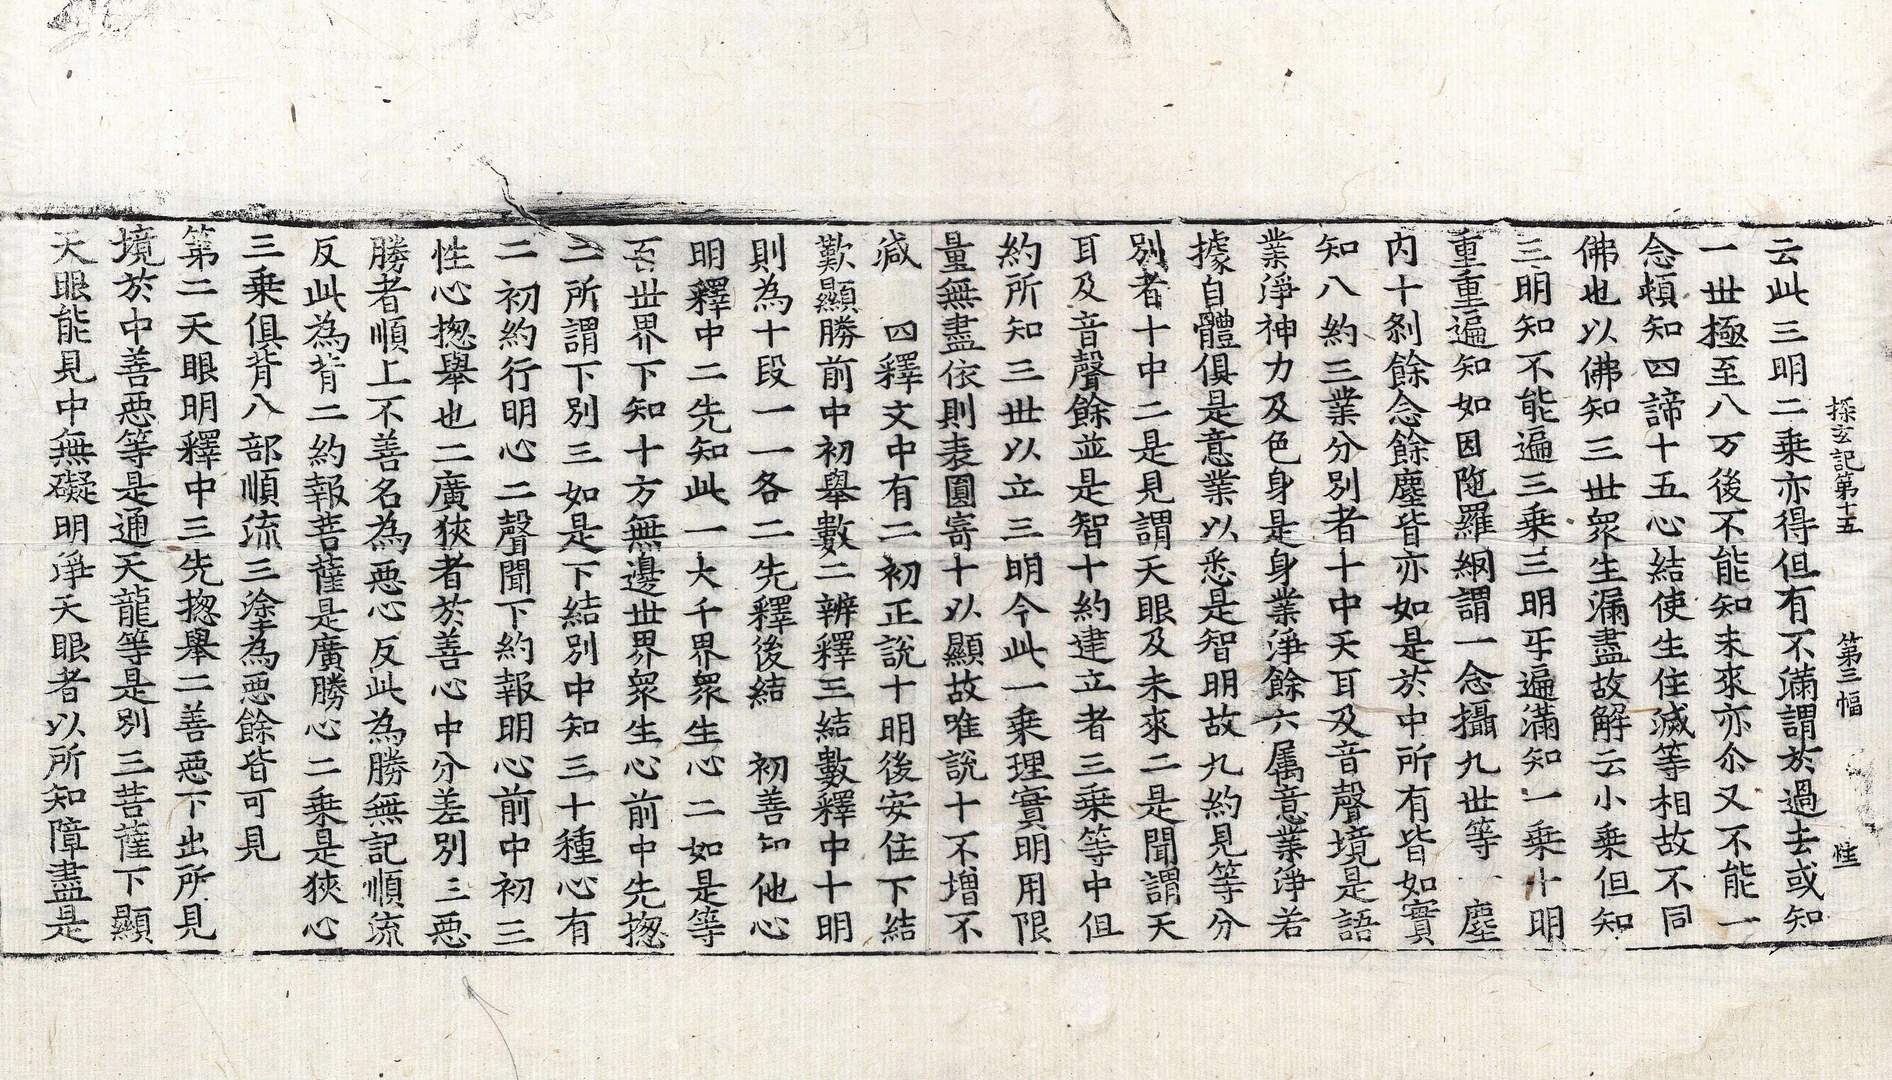 探玄記第十五　第三幅　性
云此三明二乗亦得但有不滿謂於過去或知
一丗極至八万後不能知未來亦尒又不能一
念頓知四諦十五心結使生住滅等相故不同
佛也以佛知三丗衆生漏盡故解云小乗但知
三明知不能遍三乗三明乎遍滿知一乗十明
重重遍知如因陁羅網謂一念攝九丗等一塵
内十刹餘念餘塵皆亦如是於中所有皆如實
知八約三業分別者十中天耳及音聲境是語
業淨神力及色身是身業淨餘六属意業淨若
據自體俱是意業以悉是智明故九約見等分
別者十中二是見謂天眼及未來二是聞謂天
耳及音聲餘並是智十約建立者三乗等中但
約所知三丗以立三明今此一乗理實明用限
量無盡依則表圓寄十以顯故唯說十不增不
減　四釋文中有二初正說十明後安住下結
歎顯勝前中初舉數二辨釋三結數釋中十明
則為十段一一各二先釋後結　初善知他心
明釋中二先知此一大千界衆生心二如是等
百丗界下知十方無邊丗界衆生心前中先揔
二所謂下別三如是下結別中知三十種心有
二初約行明心二聲聞下約報明心前中初三
性心揔舉也二廣狹者於善心中分差別三惡
勝者順上不善名為惡心反此為勝無記順流
反此為背二約報菩薩是廣勝心二乗是狹心
三乗俱背八部順流三塗為惡餘皆可見
第二天眼明釋中三先揔舉二善惡下出所見
境於中善惡等是通天龍等是別三菩薩下顯
天眼能見中無礙明淨天眼者以所知障盡是